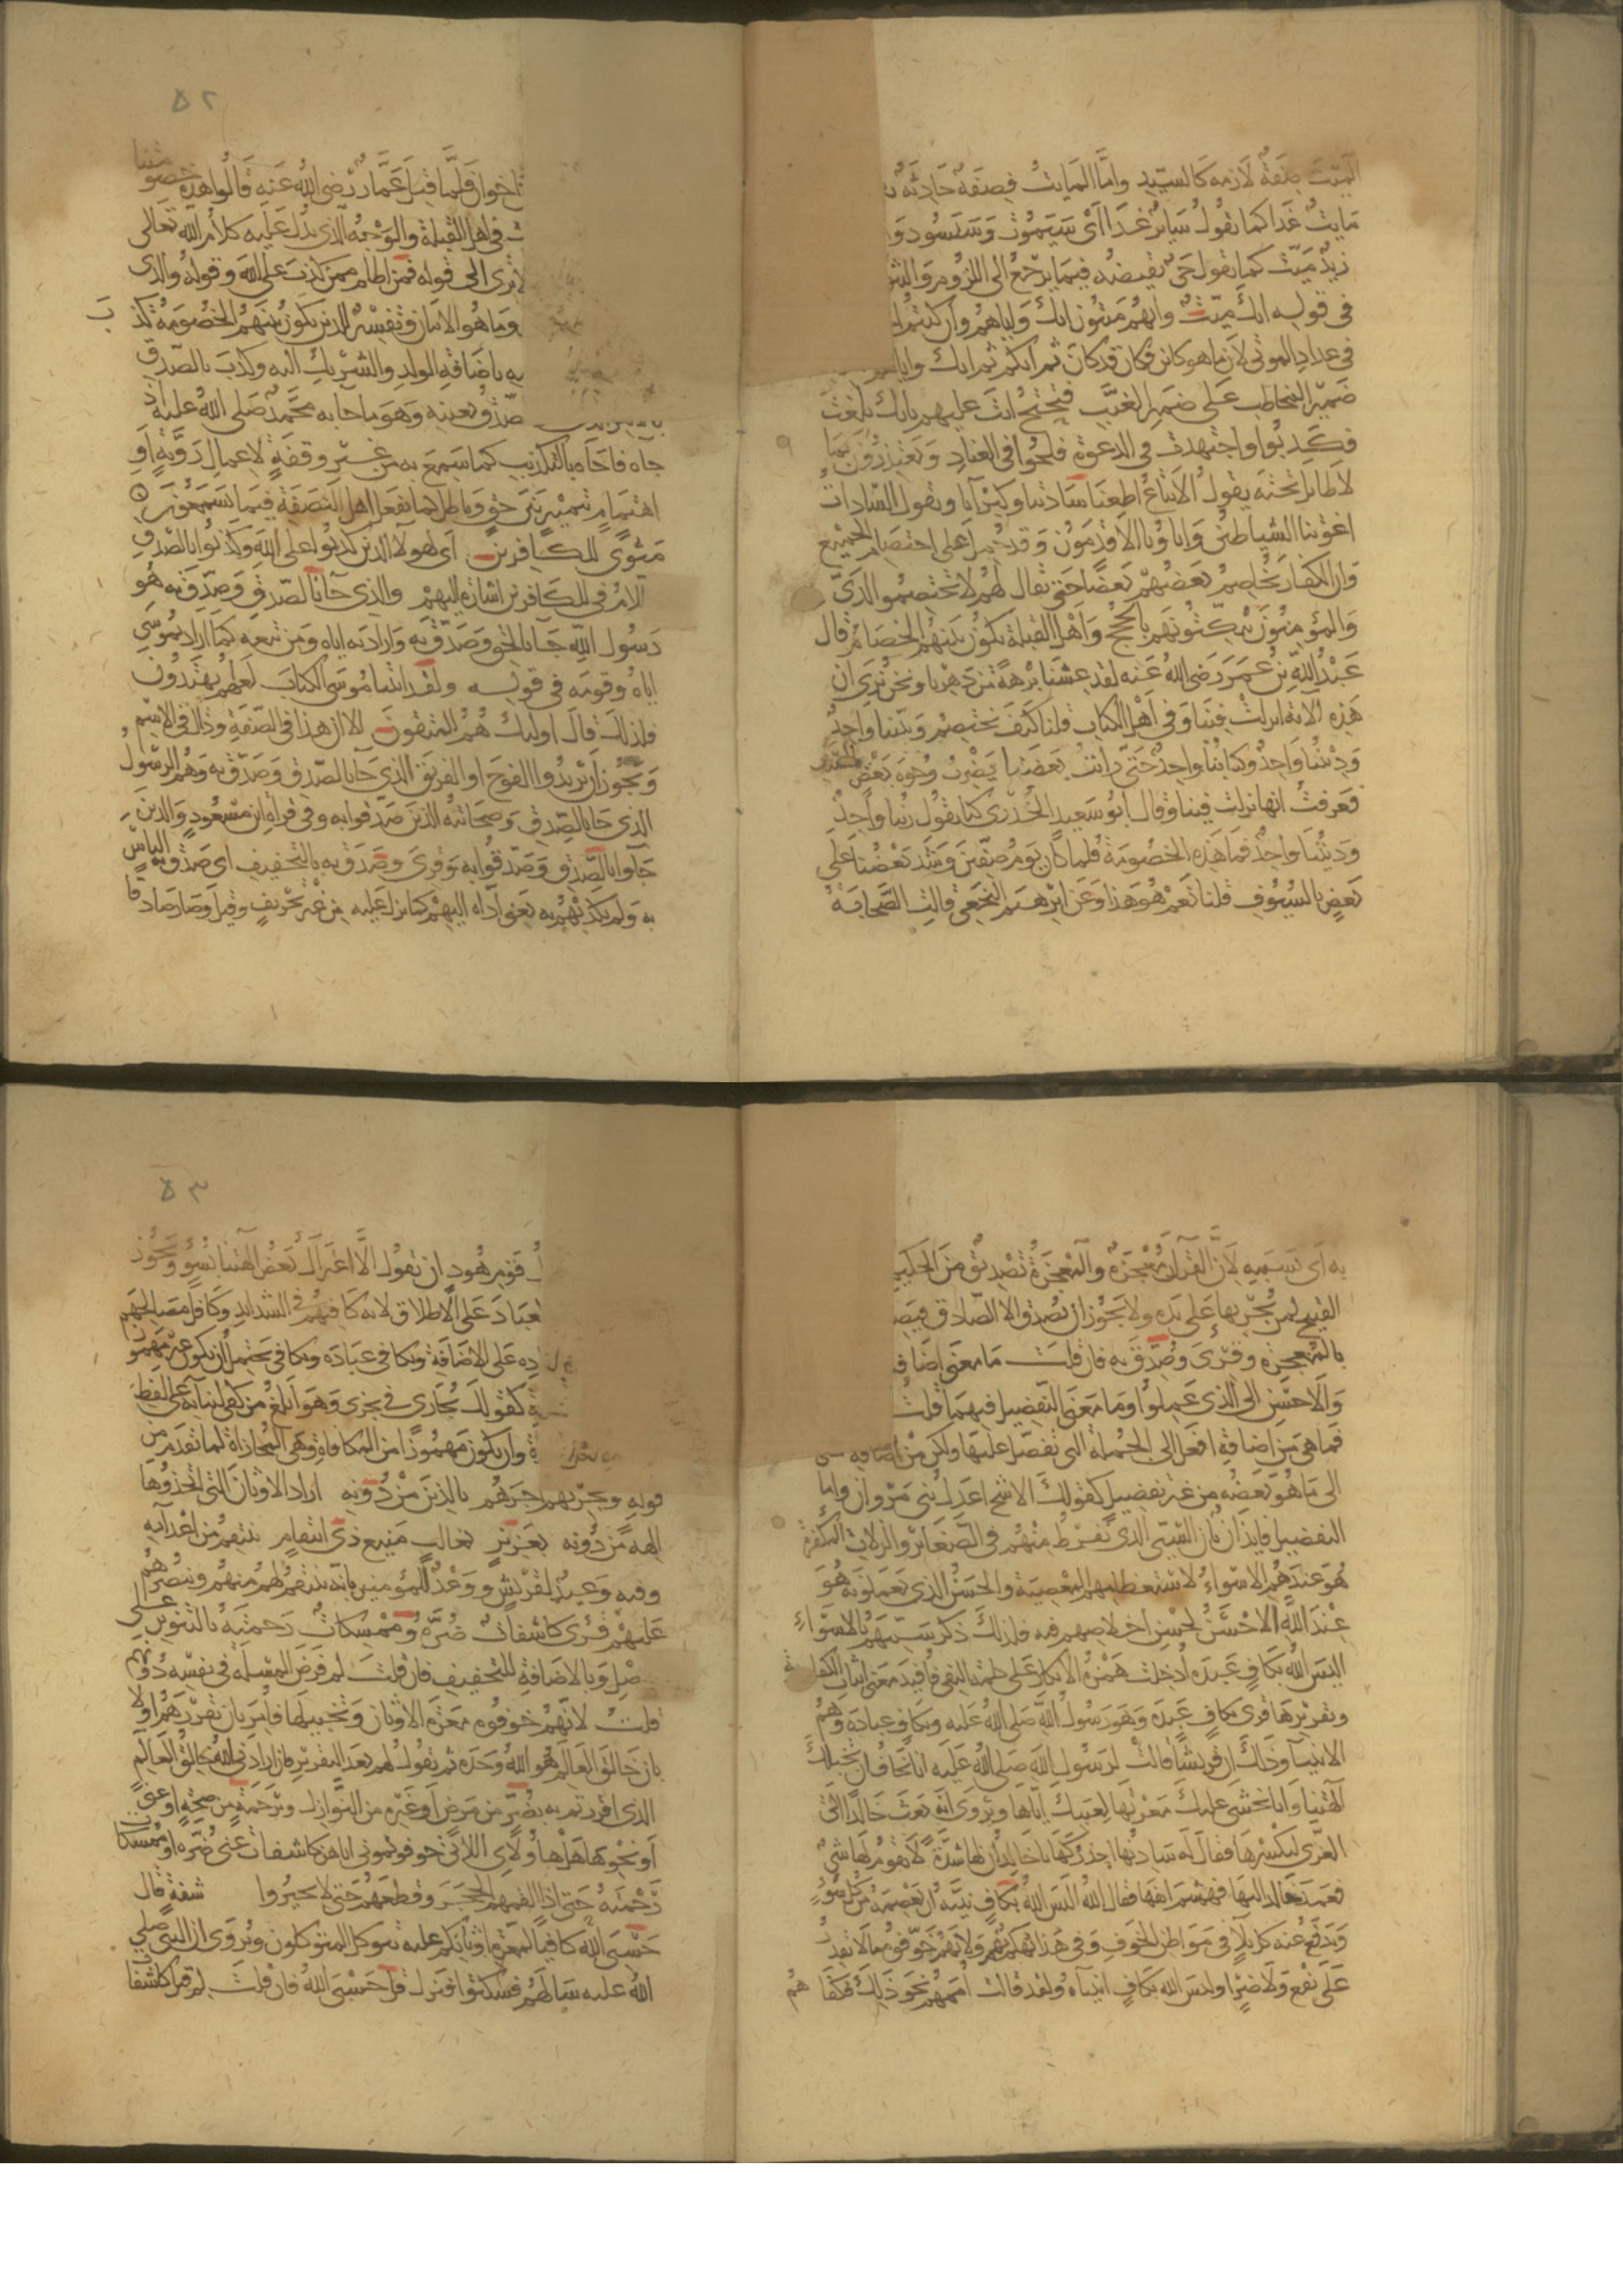 الميت صفة لازمة كالسيد واما المايت فصفة حادثة
مايت غدا كما تقول سايد غدا اى سيموت وسيسود
زيد ميت كما تقول حى نقيضه فيما يرجع الى اللزوم والثبو
فى قوله انك ميت وانهم ميتون انك واياهم وان كنتم
فى عداد الموتى لان ما هو كاين فكان قد كان ثم انكم ثم انك واياهم
ضمير المخاطب على ضمير الغيب فتحتج انت عليهم بانك بلغت
فكذبوا واجتهدت فى الدعوة فلجوا فى العناد ويعتذرون بما
لا طايل تحته يقول الاتباع اطعنا سادتنا وكبرآنا ويقول السادات
اغوتنا الشياطين واباؤنا الاقدمون وقد حمل على اختصام الجميع
وان الكفار يخاصم بعضهم بعضا حتى يقال لهم لا تختصموا لدى
والمؤمنون يبكتونهم بالحجج واهل القبلة يكون بينهم الخصام قال
عبد الله بن عمر رضى الله عنه لقد عشنا برهة من دهرنا ونحن نرى ان
هذه الآية انزلت فينا وفى اهل الكتاب قلنا كيف نختصم ونبينا واحد
وديننا واحد وكتابنا واحد حتى رايت بعضنا يضرب وجوه بعض بالسيف
فعرفت انها نزلت فينا وقال ابو سعيد الخدرى كنا نقول ربنا واحد
وديننا واحد فما هذه الخصومة فلما كان يوم صفين وشد بعضنا على
بعض بالسيوف قلنا نعم هو هذا وعن ابرهيم النخعى قالت الصحابة
٥٢
اخوان فلما قتل عثمان رضى الله عنه قالوا هذه خصومتنا
فى اهل القبلة والوجه الذى يدل عليه كلام الله تعالى
ترى الى قوله فمن اظلم ممن كذب على الله وقوله والذى
وما هو الا بيان وتفسير للذين يكون بينهم الخصومة كذب
يه باضافة الولد والشريك اليه وكذب بالصدق
صدق بعينه وهو ما جا به محمد صلى الله عليه اذ
جاه فاجاه بالتكذيب كما سمع به من غير وقفة لاعمال روية او
اهتمام بتمييز بين حق وباطل كما يفعل اهل النصفة فيما يسمعون
مثوى للكافرين اى لهولآ الذين كذبوا على الله وكذبوا بالصدق
اللام فى للكافرين اشارة اليهم والذى جا بالصدق وصدق به هو
رسول الله جا بالحق وصدق به واراد به اياه ومن تبعه كما اراد بموسى
اياه وقومه فى قوله ولقد اتينا موسى الكتاب لعلهم يهتدون
فلذلك قال اوليك هم المتقون الا ان هذا فى الصفة وذلك فى الاسم
ويجوز ان يريد والفوج او الفريق الذى جا بالصدق وصدق به وهم الرسول
الذى جا بالصدق وصحابته الذين صدقوا به وفى قراة ابن مسعود والذين
جآوا بالصدق وصدقوا به وقرى وصدق به بالتخفيف اى صدق به الناس
به ولم يكذبهم به يعنى اداه اليهم كما نزل عليه من غير تحريف وقيل وصار صادقا
به اى بسببه لان القرآن معجزة والمعجزة تصديق من الحكيم
القبيح لمن يجريها على يده ولا يجوز ان يصدق الا الصادق فيصير
بالمعجزة وقرى وصدق به فان قلت ما معنى اضافة
والاحسن الى الذى عملوا وما معنى التفضيل فيهما قلت
فما هى من اضافة افعل الى الجملة التى تفضل عليها ولكن من اضافة
الى ما هو بعضه من غير تفضيل كقولك الاشج اعدل بنى مروان واما
التفضيل فايذان بان السيئ الذى يفرط منهم فى الصغاير والزلات المكفرة
هو عندهم الاسواء لاستعظامهم المعصية والحسن الذى يعملونه هو
عند الله الاحسن لحسن اخلاصهم فيه فلذلك ذكر سيئهم بالاسواء
اليس الله بكاف عبده ادخلت همزة الانكار على كلمة النفى فافيد معنى اثبات الكفاية
وتقريرها قرى بكاف عبده وهو رسول الله صلى الله عليه وبكاف عباده وهم
الانبيآ وذلك ان قريشا قالت لرسول الله صلى الله عليه انا نخاف ان تخبلك
آلهتنا وانا نخشى عليك معرتها لعيبك اياها ويروى انه بعث خالدا الى
العزى ليكسرها فقال له سادنها احذركها يا خالد ان لها شدة لا يقوم لها شى
فعمد خالد اليها فهشم انفها فقال الله اليس الله بكاف نبيه ان يعصمه من كل سوء
ويدفع عنه كل بلآ فى مواطن الخوف وفى هذا تهكم بهم لانهم خوفوه ما لا يقدر
على نفع ولا ضر او اليس الله بكاف انبيآه ولقد قالت اممهم نحو ذلك فكفاهم
٥٣
قوم هود ان نقول الا اعتراك بعض آلهتنا بسوء ويجوز
لعباد على الاطلاق لانه كافيهم فى الشدايد وكافل مصالحهم
ده على الاضافة ويكافى عباده ويكافى يحتمل ان يكون غير مهموز
كقولك يجارى فى يجرى وهو ابلغ من كفى لبنآيه على لفظ
وان يكون مهموزا من المكافاة وهى المجازاة لما تقدم من
قوله ويجزيهم اجرهم بالذين من دونه اراد الاوثان التى اتخذوها
الهة من دونه بعزيز بغالب منيع ذى انتقام ينتقم من اعدآيه
وفيه وعيد لقريش ووعد للمؤمنين بانه ينتقم لهم منهم وينصرهم
عليهم قرى كاشفات ضره وممسكات رحمته بالتنوين على
صل وبالاضافة للتخفيف فان قلت لم فرض المسلة فى نفسه دونهم
قلت لانهم خوفوه معرة الاوثان وتخبيلها فامر بان يقررهم اولا
بان خالق العالم هو الله وحده ثم يقول لهم بعد التقرير فان ارادنى الله خالق العالم
الذى اقررتم به بضر من مرض او غيره من النوازل وبرحمة من صحة او غنى
او نحوهما هل هاولاى اللاتى خوفتمونى اياهن كاشفات عنى ضره او ممسكات
رحمته حتى اذا القمهم الحجر وقطعهم حتى لا يحيروا شفة قال
حسبى الله كافيا لمعرة اوثانكم عليه يتوكل المتوكلون ويروى ان النبى صلى
الله عليه سالهم فسكتوا فنزل قل حسبى الله فان قلت لم قيل كاشفا